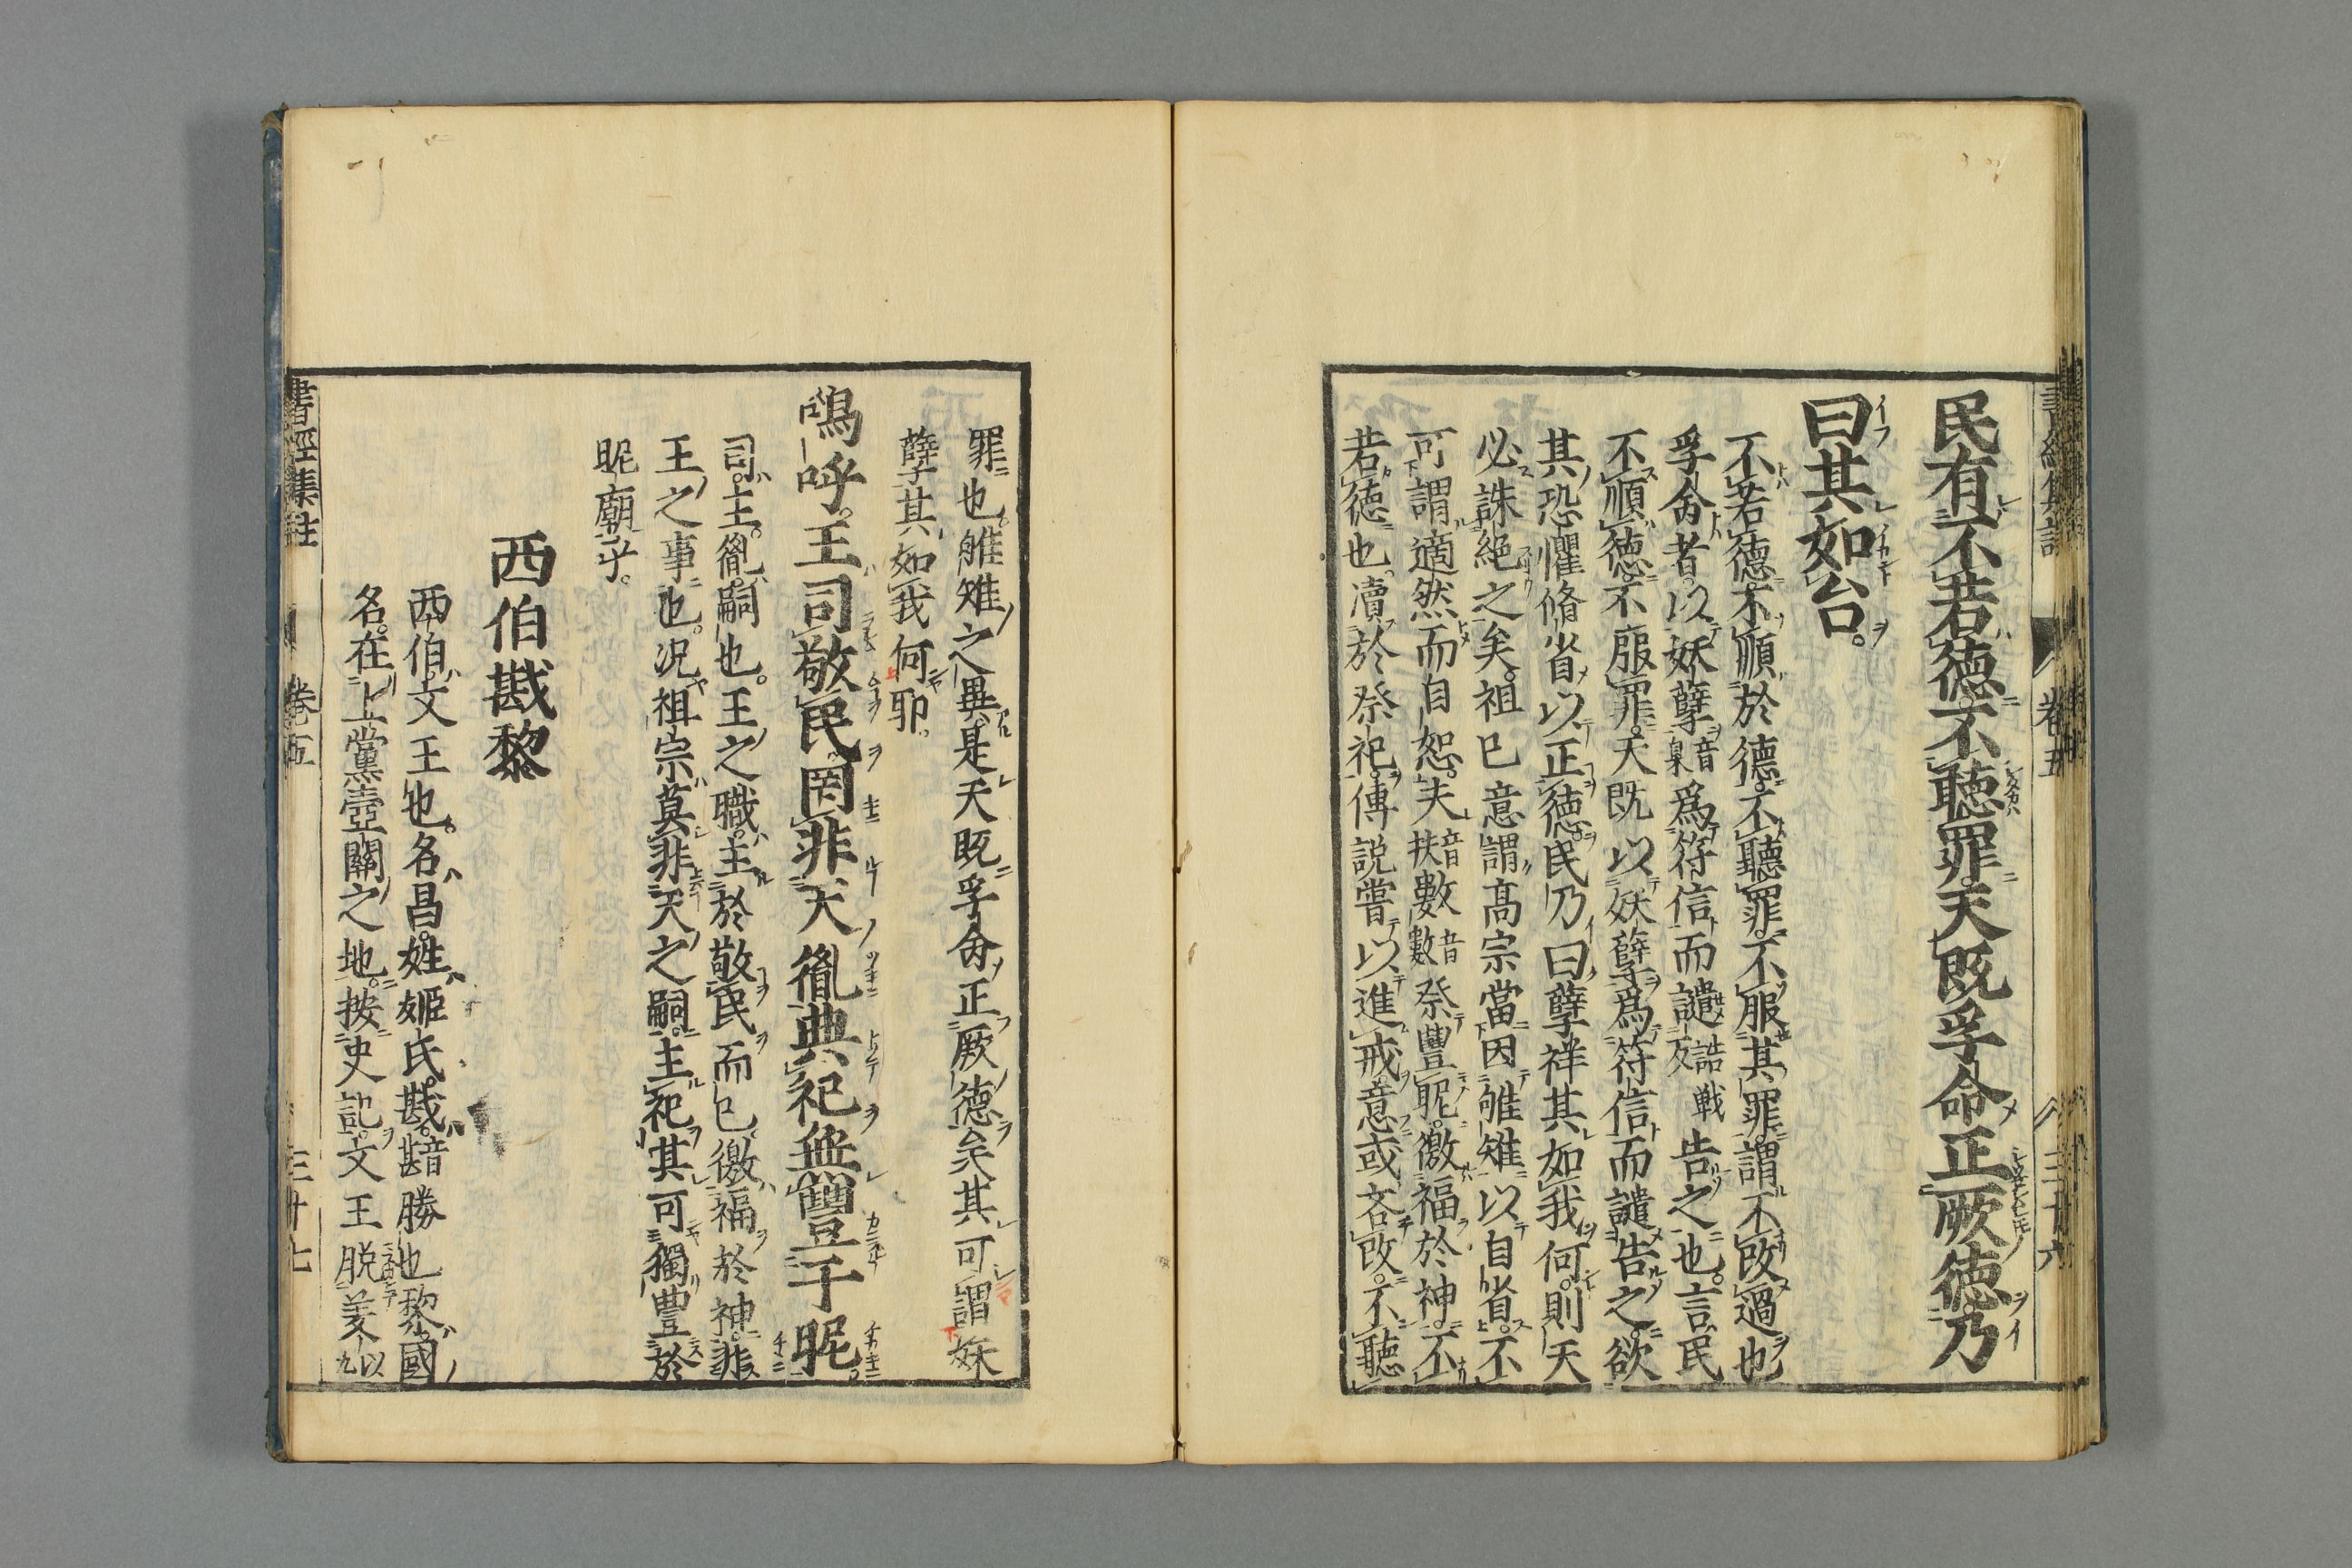 書經集註 卷五 三十六
民有不若德不聽罪天既孚命正厥德乃
曰其如台
不若德不順於德不聽罪不服其罪謂不改過也
孚命者以妖孽音臬爲符信而譴詰戰反告之也言民
不順德不服罪天既以妖孽爲符信而譴告之欲
其恐懼脩省以正德民乃曰孽祥其如我何則天
必誅絕之矣祖已意謂高宗當因雊雉以自省不
可謂適然而自恕夫音扶數音數祭豐昵徼福於神不
若德也瀆於祭祀傅説嘗以進戒意或吝改不聽
罪也雊雉之異是天既孚命正厥德矣其可謂妖
孽其如我何耶
嗚呼王司敬民罔非天胤典祀無豐于昵
司主胤嗣也王之職主於敬民而已徼福於神非
王之事也况祖宗莫非天之嗣主祀其可獨豊於
昵廟乎
西伯戡黎
西伯文王也名昌姓姬氏戡音堪勝也黎國
名在上黨壺關之地按史記文王脱羑以九
書經集註 卷五 三十七